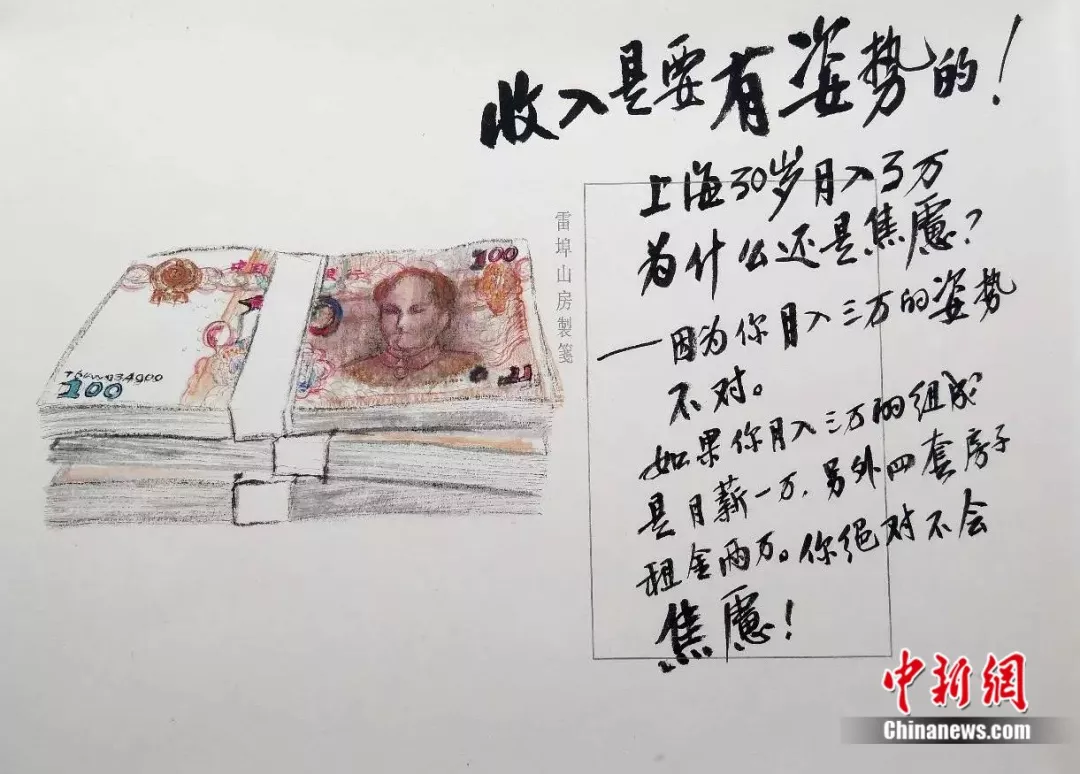 收入是要有姿势的！
上海30岁月入3万
为什么还是焦虑？
——因为你月入三万的姿势
不对。
如果你月入三万的组成
是月薪一万，另外四套房子
租金两万。你绝对不会
焦虑！
雷埠山房製箋
100
100
中新網
Chinanews.com